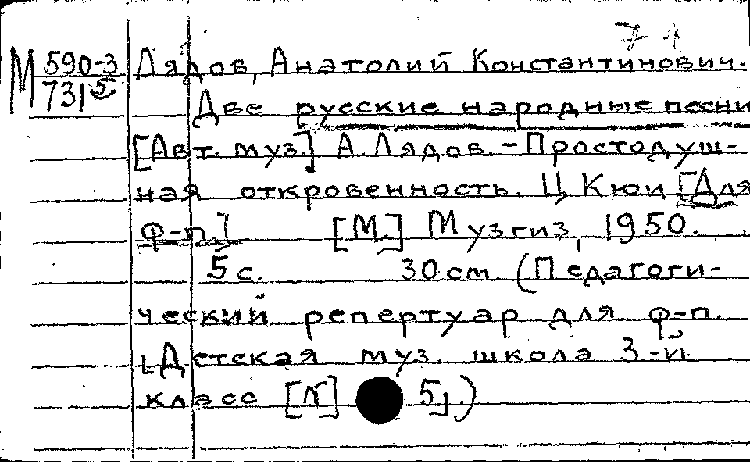 М 590-3 Лядов, Анатолий Константинович.
731
Две русские народные песни
[Авт. муз.] А. Лядов. - Простодуш-
ная откровенность. Ц. Кюи [Для
ф-п.] [М.] Музгиз, 1950.
5 с. 30 см. (Педагоги-
ческий репертуар для ф-п.
Детская муз. школа 3-й
класс [№] 5.)